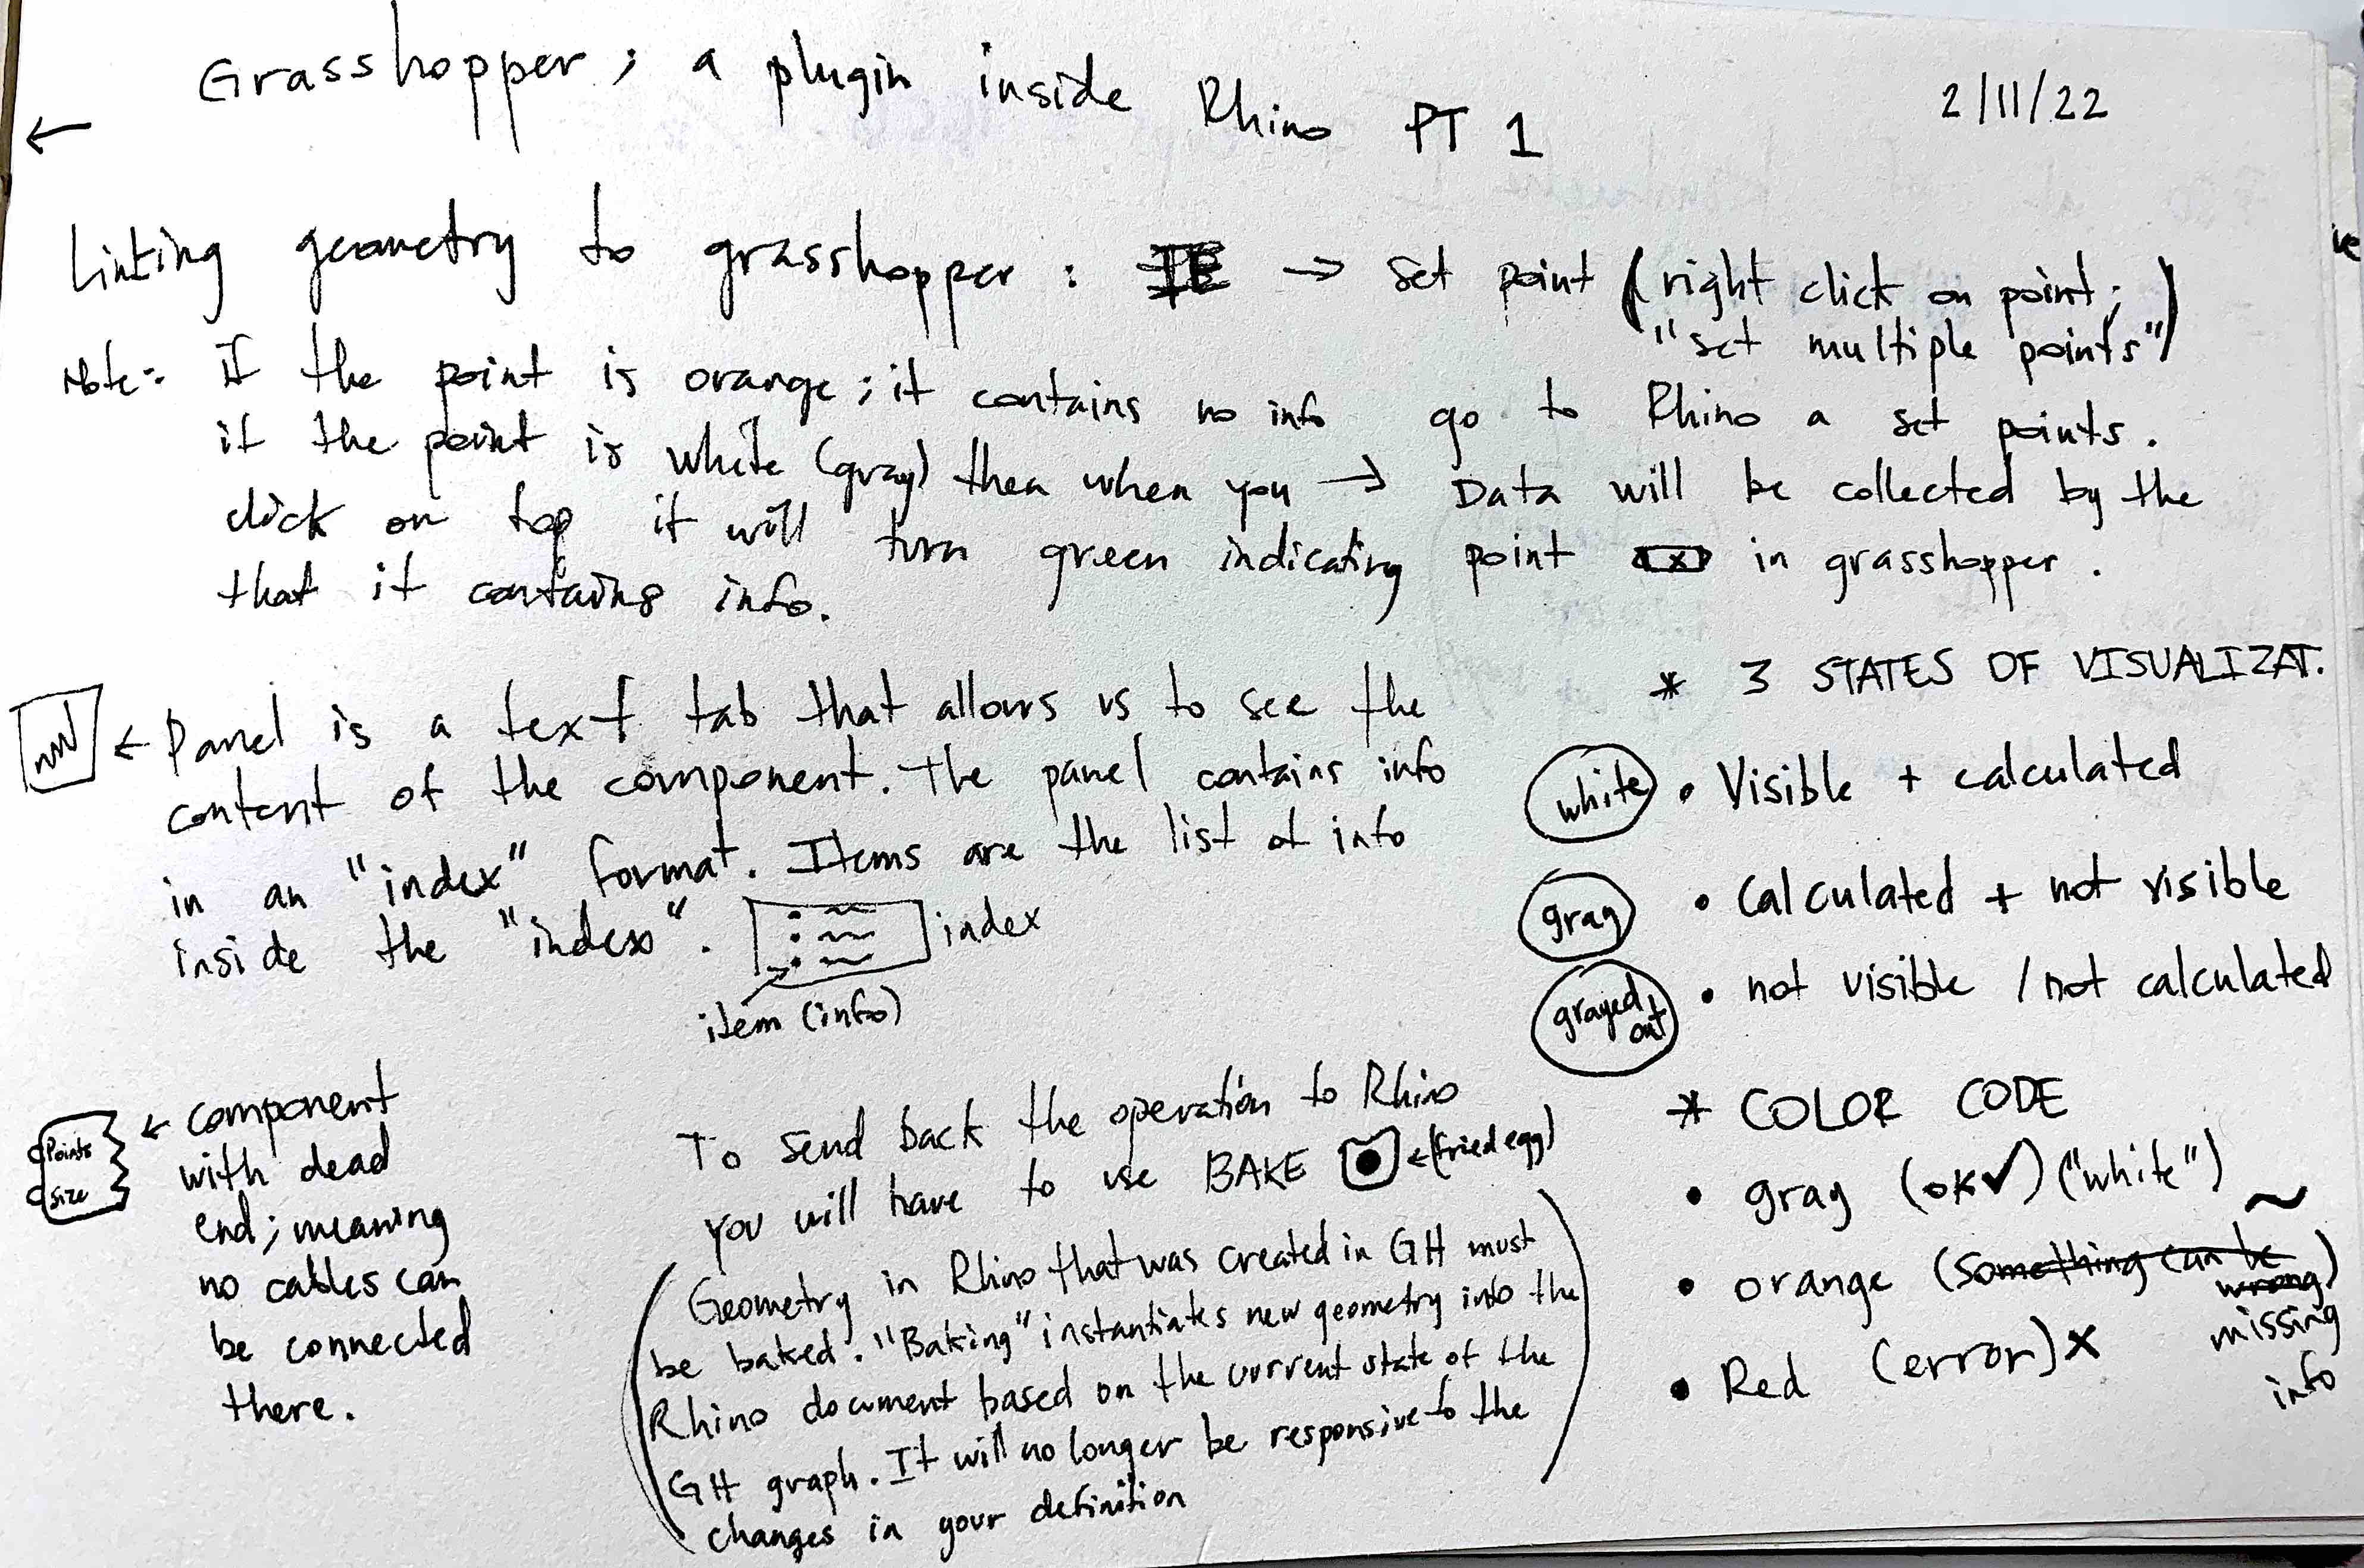 Grasshopper; a plugin inside Rhino PT 1
2/11/22
Linking geometry to grasshopper : → set point (right click on point;
"set multiple points")
Note: If the point is orange; it contains no info
if the point is white (gray) then when you
click on top it will turn green indicating
that it contains info.
go to Rhino a set points.
→ Data will be collected by the
point in grasshopper.
← Panel is a text tab that allows us to see the
content of the component. The panel contains info
in an "index" format. Items are the list of info
inside the "index".
index
item (info)
* 3 STATES OF VISUALIZAT.
white • Visible + calculated
gray • Calculated + not visible
grayed out • not visible / not calculated
Points
Size
← component
with dead
end; meaning
no cables can
be connected
there.
To send back the operation to Rhino
you will have to use BAKE ← (fried egg)
(Geometry in Rhino that was created in GH must
be baked. "Baking" instantiates new geometry into the
Rhino document based on the current state of the
GH graph. It will no longer be responsive to the
changes in your definition)
* COLOR CODE
• gray (ok✓) ("white")
• orange (something can be
wrong)
missing
info
• Red (error) x